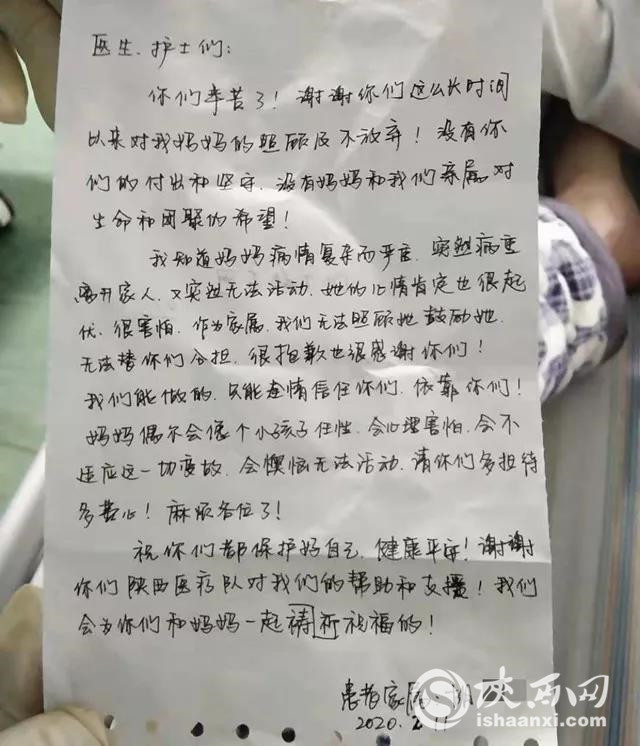 医生、护士们：
你们辛苦了！谢谢你们这么长时间
以来对我妈妈的照顾及不放弃！没有你
们的付出和坚守，没有妈妈和我们亲属对
生命和团聚的希望！
我知道妈妈病情复杂而严重，突然病重
离开家人，又突然无法活动，她的心情肯定也很起
伏、很害怕，作为家属，我们无法照顾她鼓励她，
无法替你们分担，很抱歉也很感谢你们！
我们能做的，只能尽情信任你们，依靠你们！
妈妈偶尔会像个小孩子任性，会心理害怕，会不
适应这一切变故，会懊恼无法活动，请你们多担待
多费心！麻烦各位了！
祝你们都保护好自己，健康平安！谢谢
你们陕西医疗队对我们的帮助和支援！我们
会为你们和妈妈一起祷祈祝福的！
患者家属：
2020.2.11
陕西网
ishaanxi.com